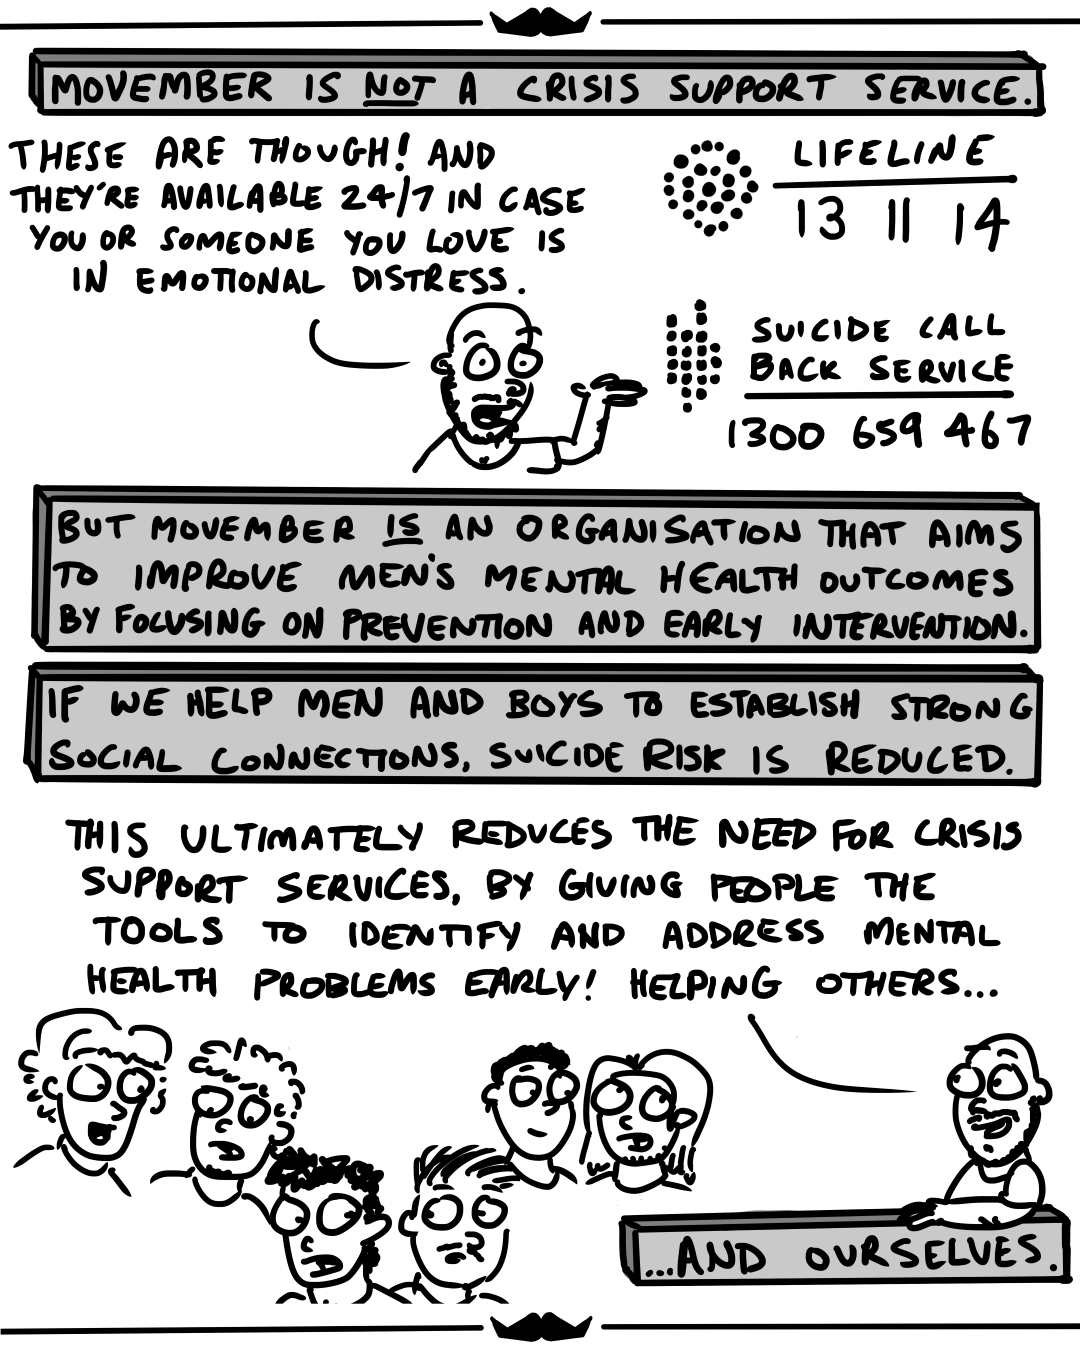 MOVEMBER IS NOT A CRISIS SUPPORT SERVICE.
THESE ARE THOUGH! AND
THEY'RE AVAILABLE 24/7 IN CASE
YOU OR SOMEONE YOU LOVE IS
IN EMOTIONAL DISTRESS.
LIFELINE
13 11 14
SUICIDE CALL
BACK SERVICE
1300 659 467
BUT MOVEMBER IS AN ORGANISATION THAT AIMS
TO IMPROVE MEN'S MENTAL HEALTH OUTCOMES
BY FOCUSING ON PREVENTION AND EARLY INTERVENTION.
IF WE HELP MEN AND BOYS TO ESTABLISH STRONG
SOCIAL CONNECTIONS, SUICIDE RISK IS REDUCED.
THIS ULTIMATELY REDUCES THE NEED FOR CRISIS
SUPPORT SERVICES, BY GIVING PEOPLE THE
TOOLS TO IDENTIFY AND ADDRESS MENTAL
HEALTH PROBLEMS EARLY! HELPING OTHERS...
...AND OURSELVES.